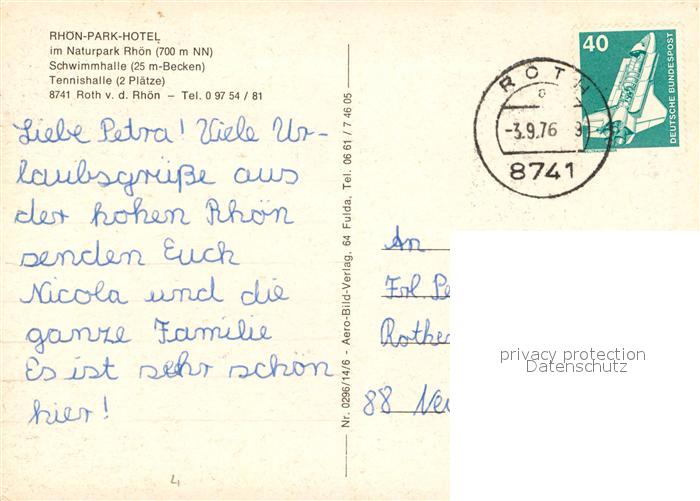 RHÖN-PARK-HOTEL
im Naturpark Rhön (700 m NN)
Schwimmhalle (25 m-Becken)
Tennishalle (2 Plätze)
8741 Roth v. d. Rhön – Tel. 0 97 54 / 81
Liebe Petra! Viele Ur-
laubsgrüße aus
der hohen Rhön
senden Euch
Nicola und die
ganze Familie
Es ist sehr schön
hier!
Nr. 0296/14/6 - Aero-Bild-Verlag, 64 Fulda, Tel. 06 61 / 7 46 05
40
DEUTSCHE BUNDESPOST
ROTH
-3.9.76
8741
An
Frl
88
privacy protection
Datenschutz